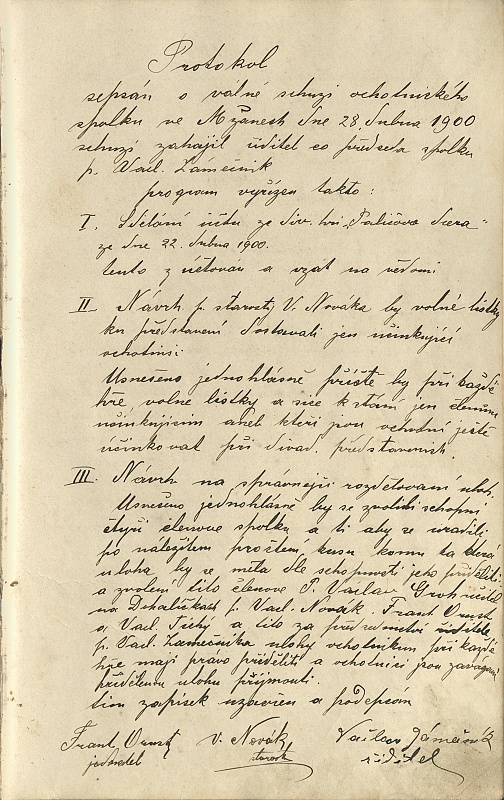 Protokol
sepsán o valné schůzi ochotnického
spolku ve Mžanech dne 28. dubna 1900
schůzi zahájil řiditel co předseda spolku
p. Václ. Zámečník
program vyřízen takto:
I. Sdělání účtu ze div. hri „Paličova dcera"
ze dne 22. dubna 1900.
tento zúčtován a vzat na vědomí
II. Návrh p. starosty V. Nováka by volné lístky
ku představení dostavali jen účinkující
ochotníci
Usnešeno jednohlasně příště by při každé
hře volné lístky a sice k stání jen členům
účinkujícím aneb kteří jsou ochotni ještě
účinkovat při divad. představeních.
III. Návrh na správnější rozdělovaní uloh.
Usnešeno jednohlasně by se zvolili schopní
čtyři členove spolku a ti aby se uradili
po náležitem pročtení kusu komu ta která
uloha by se měla dle schopnosti jeho přiděliti
a zvoleni tito členove P. Vaclav Groh řiditel
na Dohaličkach p. Vacl. Novák. Frant Ornst
a Vacl. Tichý a tito za předsednictví řiditele
p. Vacl. Zamečnika ulohy ochotnikum při každé
hře mají právo přiděliti a ochotníci jsou zavazani
přidělenu ulohu přijmouti.
tim zapisek uzavřen a podepsán
Frant Ornst V. Novák Vaclav Zámečník
jednatel starosta řiditel